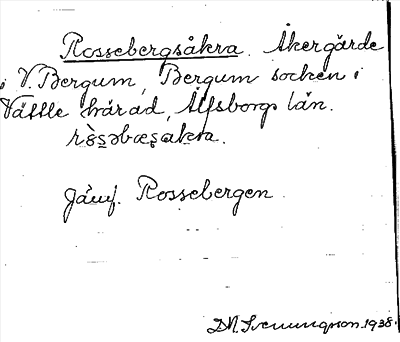 Rossebergsåkra. Åkergärde
i V. Bergum, Bergum socken i
Vättle härad, Älfsborgs län.
Jämf. Rossebergen
D.N. Svenungsson. 1938.